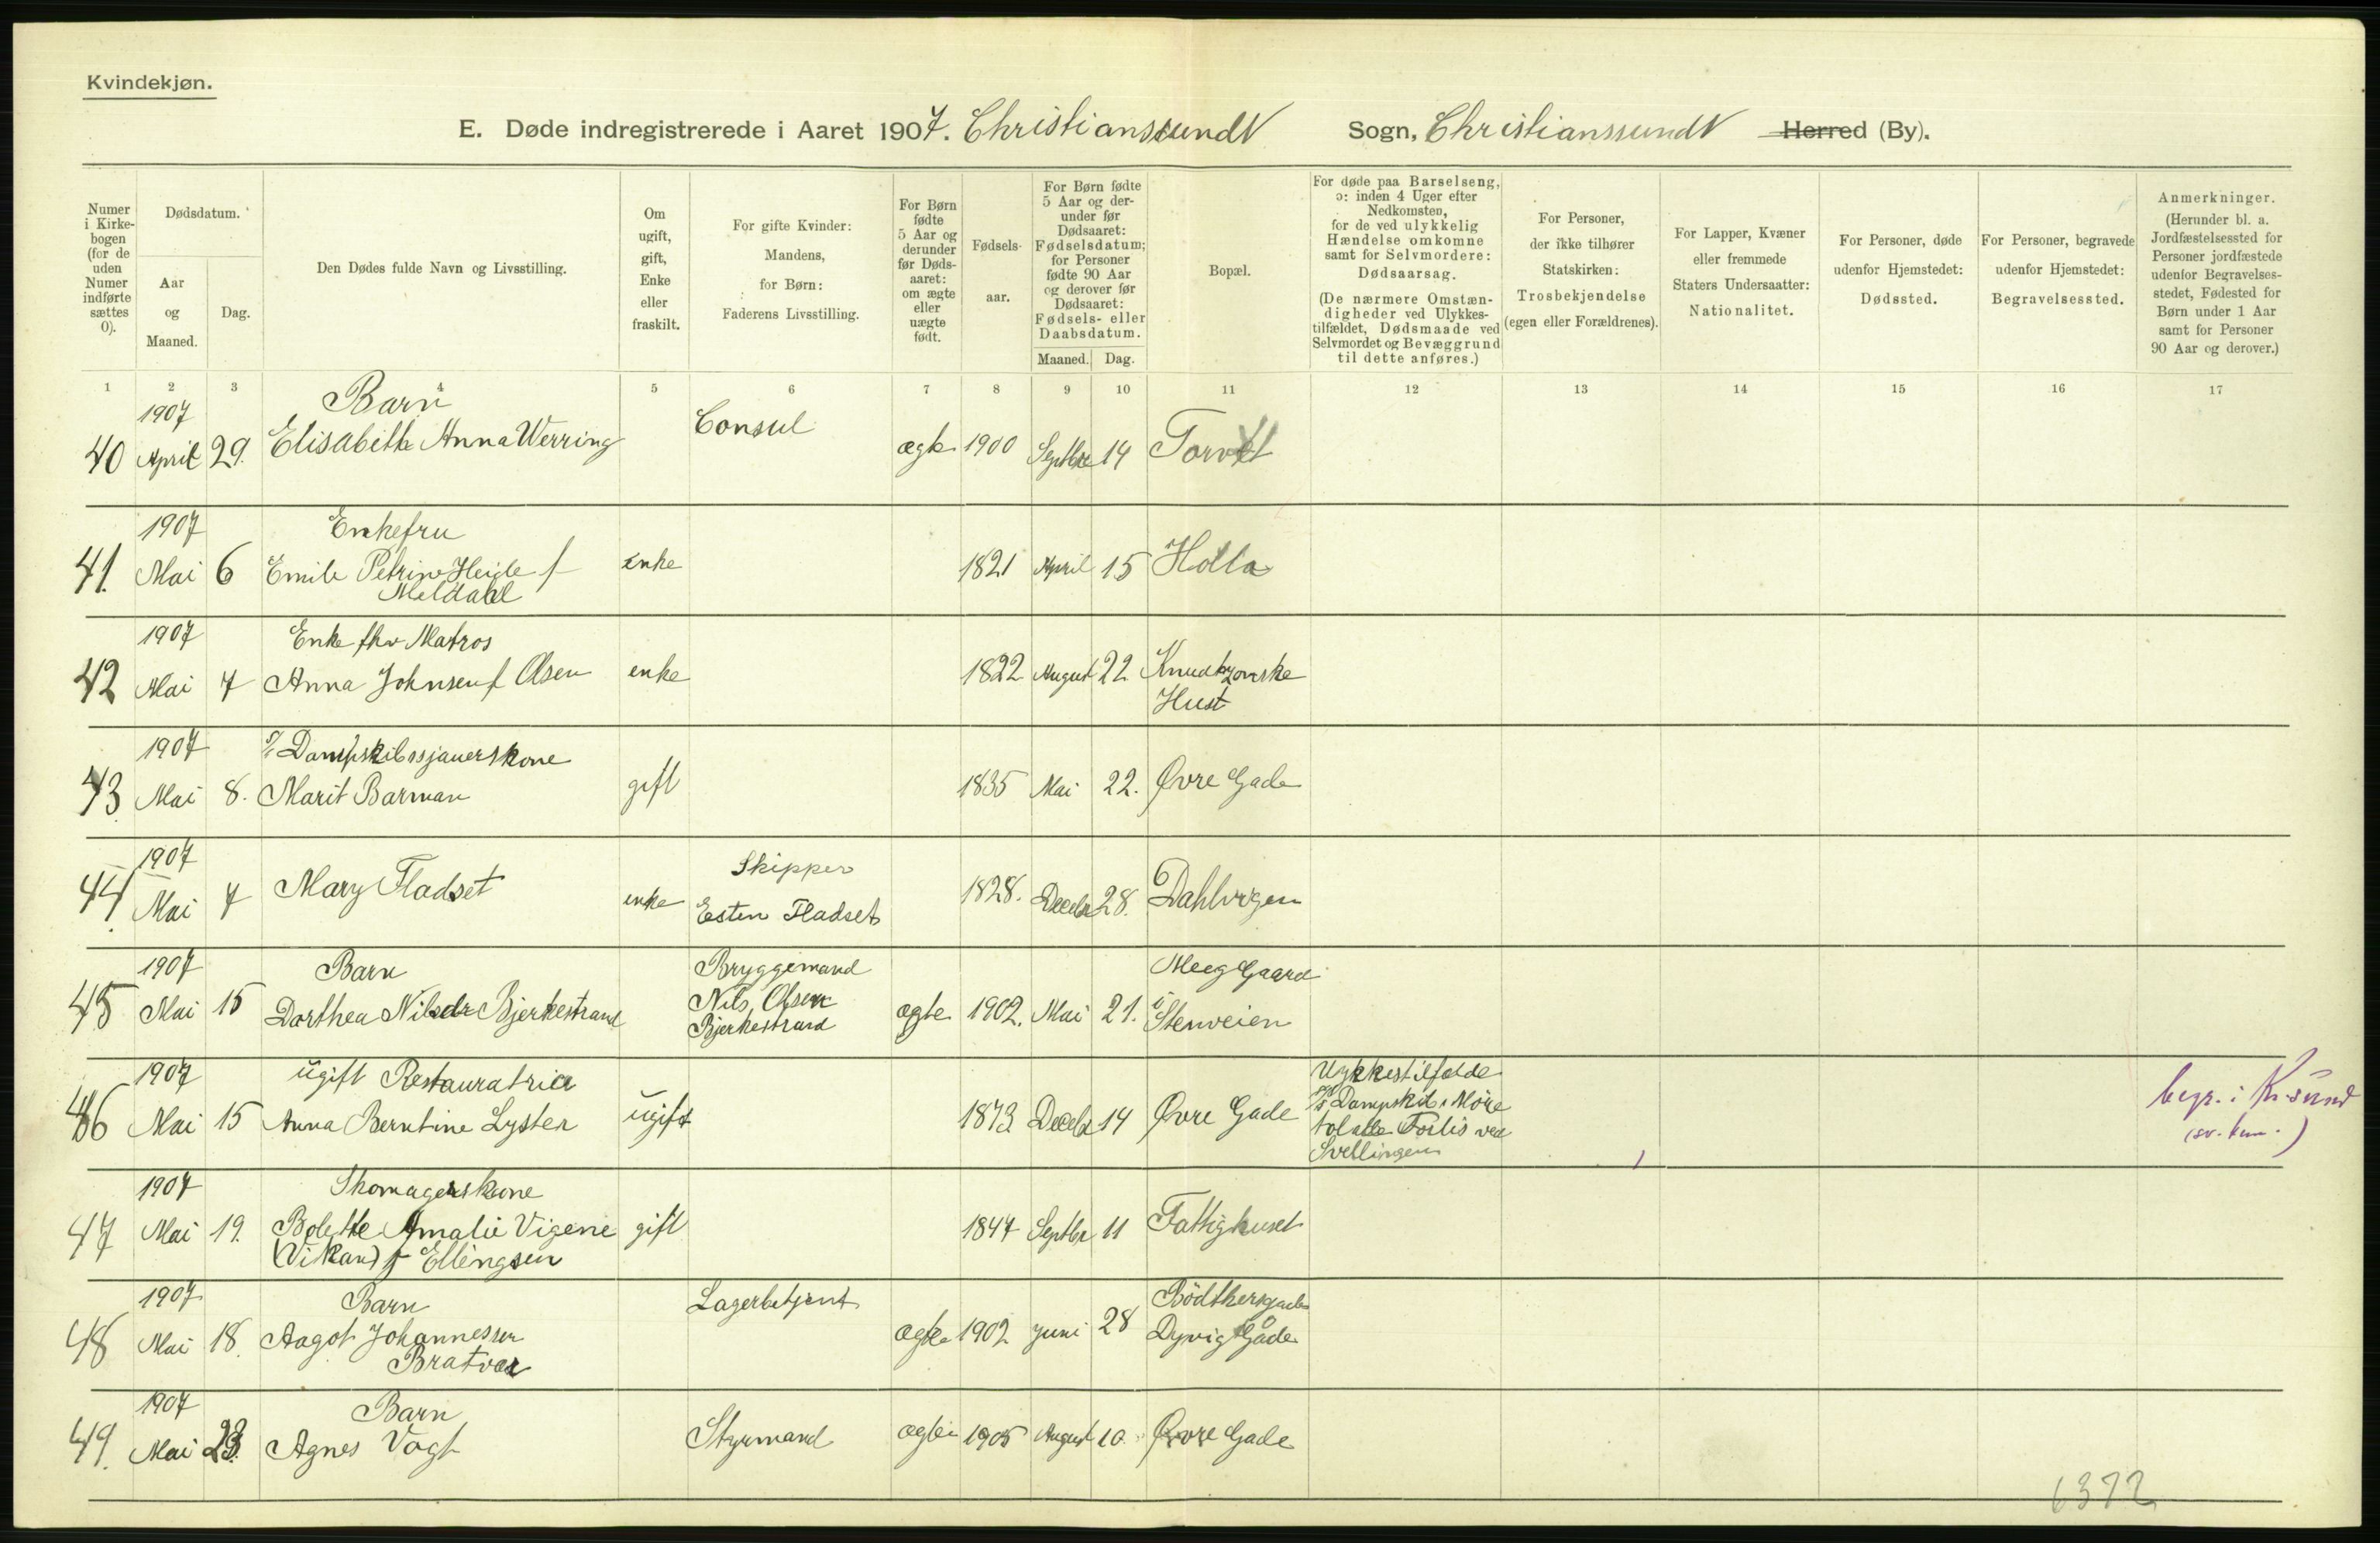 Kvindekjøn.
E. Døde indregistrerede i Aaret 1907. Christianssund N Sogn, Christianssund N Herred (By).
Numer i Kirke-bogen (for de uden Numer indførte sættes 0).
Dødsdatum.
Aar og Maaned.
Dag.
Den Dødes fulde Navn og Livsstilling.
Om ugift, gift, Enke eller fraskilt.
For gifte Kvinder: Mandens, for Børn: Faderens Livsstilling.
For Børn fødte 5 Aar og derunder før Døds-aaret: om ægte eller uægte født.
Fødsels-aar.
For Børn fødte 5 Aar og der-under før Dødsaaret: Fødselsdatum; for Personer fødte 90 Aar og derover før Dødsaaret: Fødsels- eller Daabsdatum.
Maaned. Dag.
Bopæl.
For døde paa Barselseng, ɔ: inden 4 Uger efter Nedkomsten, for de ved ulykkelig Hændelse omkomne samt for Selvmordere: Dødsaarsag.
(De nærmere Omstæn-digheder ved Ulykkes-tilfældet, Dødsmaade ved Selvmordet og Bevæggrund til dette anføres.)
For Personer, der ikke tilhører Statskirken: Trosbekjendelse (egen eller Forældrenes).
For Lapper, Kvæner eller fremmede Staters Undersaatter: Nationalitet.
For Personer, døde udenfor Hjemstedet: Dødssted.
For Personer, begravede udenfor Hjemstedet: Begravelsessted.
Anmerkninger.
(Herunder bl. a. Jordfæstelsessted for Personer jordfæstede udenfor Begravelses-stedet, Fødested for Børn under 1 Aar samt for Personer 90 Aar og derover.)
1 2 3 4 5 6 7 8 9 10 11 12 13 14 15 16 17
1907 Barn Consul
40 April 29. Elisabeth Anna Werring ægte 1900 Septbr 14 Torvet
1907 Enkefru
41. Mai 6 Emile Petrine Heide f enke 1821 April 15 Holla
Meldahl
1907 Enke fhv Matros
42 Mai 7 Anna Johnsen f Olsen enke 1822 August 22 Knudtzonske
Hust
1907 Dampskibssjauerskone
43. Mai 8. Marit Barman gift 1835 Mai 22. Øvre Gade
1907 Skipper
44. Mai 7 Mary Fladset enke Esten Fladset 1828. Decebr 28. Dahlvigen
1907 Barn Bryggemand Meeg Gaard
45 Mai 15 Dorthea Nilsdr Bjerkestrand Nils Olsen ægte 1902. Mai 21. i Stenveien
Bjerkestrand
1907 ugift Restauratrice Ulykkestilfælde
46 Mai 15 Anna Berntine Lyster ugift 1873 Decebr 14 Øvre Gade Dampskib Möre
Fortis ved
Svellingen
begr. i Kr.sund
1907 Skomagerskone
47 Mai 19. Bolette Amalie Vigene gift 1847 Septbr 11 Fattighuset
(Vikan) f Ellingsen
1907 Barn Lagerbetjent Bödtkersgade
48 Mai 18. Aagot Johannessen ægte 1902 Juni 28 Dyvig Gade
Bratvær
1907 Barn
49. Mai 23. Agnes Vogt Styrmand ægte 1905 August 10. Øvre Gade
6372